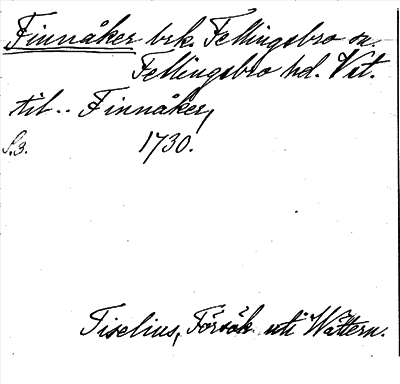 Finnåker brk. Fellingsbro sn.
Fellingsbro hd. Vst.
til.. Finnåker,
S.3. 1730.
Tiselius, Försök uti Wättern.